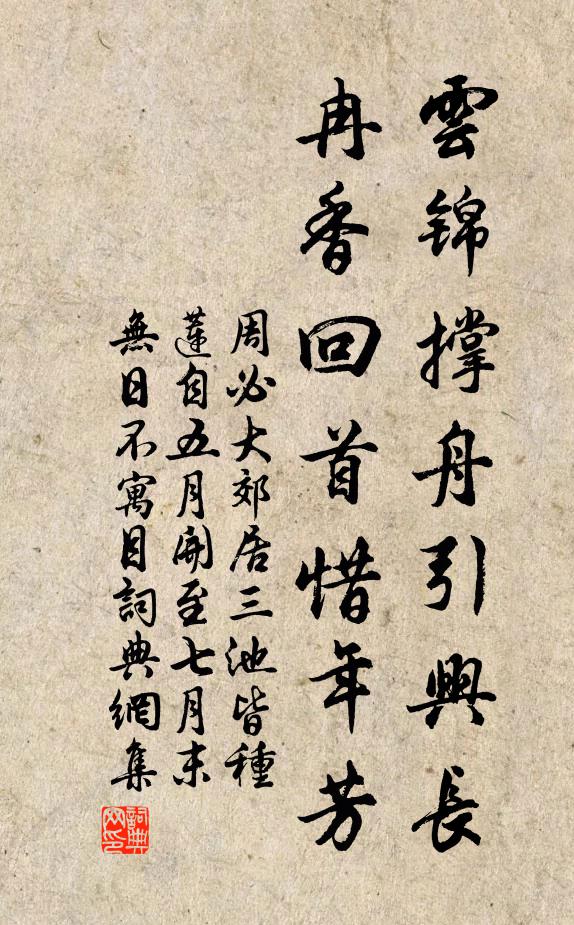 雲锦撑舟引興長
冉香回首惜年芳
周必大郊居三池皆種
蓮自五月開至七月末
無日不寓目詞典網集
詞典
网印